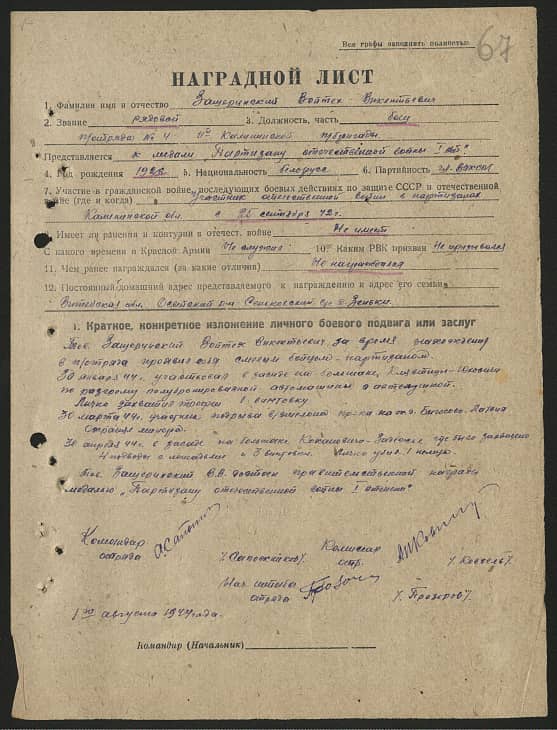 Все графы заполнять полностью.
67
НАГРАДНОЙ ЛИСТ
1. Фамилия имя и отчество Защеринский Войтех Викентьевич
2. Звание рядовой 3. Должность, часть боец
п/отряда № 4 Калининской бригады
Представляется к медали "Партизану отечественной войны I ст."
4. Год рождения 5. Национальность белорус 6. Партийность чл. ВЛКСМ
7. Участие в гражданской войне, последующих боевых действиях по защите СССР и отечественной
войне (где и когда) Участник отечественной войны в партизанах
Калининской обл. с 25 сентября 42 г.
8. Имеет ли ранения и контузии в отечест. войне Не имеет
9. С какого времени в Красной Армии Не служил 10. Каким РВК призван Не призывался
11. Чем ранее награждался (за какие отличия) Не награждался
12. Постоянный домашний адрес представляемого к награждению и адрес его семьи
Витебская обл. Освейский р-н
I. Краткое, конкретное изложение личного боевого подвига или заслуг
Тов. Защеринский Войтех Викентьевич за время нахождения
в п/отряде проявил себя смелым бойцом-партизаном.
30 января 44 г. участвовал в засаде на большаке
по разгрому полубронированной автомашины
Лично захватил трофеи 1 винтовку
30 марта 44 г. участник подрыва вражеского
Охранял минеров.
30 апреля 44 г. в засаде на большаке Коханович где было захвачено
4 подводы с лошадьми и 3 винтовки. Лично убил 1 немца.
Тов. Защеринский В.В. достоин правительственной награды
медалью "Партизану отечественной войны I степени"
Командир
отряда
Комиссар
отр.
Нач. штаба
отряда /Прозоров/.
1го августа 1944 года.
Командир (Начальник)